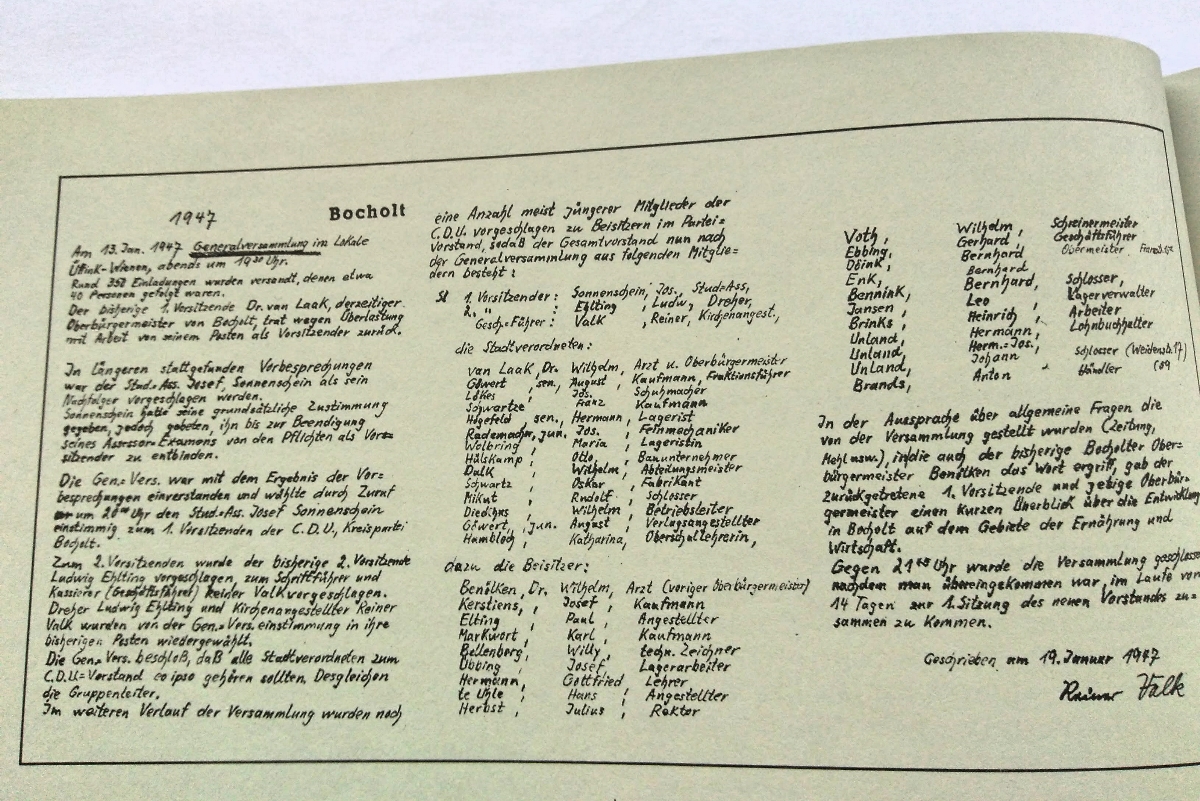 1947
Bocholt
Am 13. Jan. 1947 Generalversammlung im Lokale
Übink-Wienen, abends um 19³⁰ Uhr.
Rund 350 Einladungen wurden versandt, denen etwa
40 Personen gefolgt waren.
Der bisherige 1. Vorsitzende Dr. van Laak, derzeitiger
Oberbürgermeister von Bocholt, trat wegen Überlastung
mit Arbeit von seinem Posten als Vorsitzender zurück.
In längeren stattgefunden Vorbesprechungen
war der Stud.=Ass. Josef, Sonnenschein als sein
Nachfolger vorgeschlagen werden.
Sonnenschein hatte seine grundsätzliche Zustimmung
gegeben, jedoch gebeten, ihn bis zur Beendigung
seines Assessor-Examens von den Pflichten als Vor=
sitzender zu entbinden.
Die Gen.= Vers. war mit dem Ergebnis der Vor=
besprechungen einverstanden und wählte durch Zuruf
um 20 Uhr den Stud.=Ass. Josef Sonnenschein
einstimmig zum 1. Vorsitzenden der C.D.U, Kreispartei
Bocholt.
Zum 2. Vorsitzenden wurde der bisherige 2. Vorsitzende
Ludwig Ehlting vorgeschlagen, zum Schriftführer und
Kassierer (Geschäftsführer) Reiner Valk vorgeschlagen.
Dreher Ludwig Ehlting und Kirchenangestellter Reiner
Valk wurden von der Gen.= Vers. einstimmig in ihre
bisherigen Posten wiedergewählt.
Die Gen.= Vers. beschloß, daß alle Stadtverordneten zum
C.D.U.= Vorstand eo ipso gehören sollten. Desgleichen
die Gruppenleiter.
Im weiteren Verlauf der Versammlung wurden noch
eine Anzahl meist jüngerer Mitglieder der
C.D.U. vorgeschlagen zu Beisitzern im Partei=
vorstand, sodaß der Gesamtvorstand nun nach
der Generalversammlung aus folgenden Mitglie=
dern besteht:
1. Vorsitzender: Sonnenschein, Jos., Stud.=Ass,
2. " : Ehlting, Ludw, Dreher,
Gesch.=Führer: Valk, Reiner, Kirchenangest.,
die Stadtverordneten:
van Laak, Dr. Wilhelm, Arzt u. Oberbürgermeister
Göwert, sen., August, Kaufmann, Fraktionsführer
Lökes, Jos., Schuhmacher
Schwartze, Franz, Kaufmann
Högefeld sen., Hermann, Lagerist
Rademacher, jun., Jos., Feinmechaniker
Welbring, Maria, Lageristin
Hülskamp, Otto, Bauunternehmer
Dalk, Wilhelm, Abteilungsmeister
Schwartz, Oskar, Fabrikant
Mikut, Rudolf, Schlosser
Diedkus, Wilhelm, Betriebsleiter
Göwert, jun., August, Verlagsangestellter
Humbloch, Katharina, Oberschullehrerin,
dazu die Beisitzer:
Benölken, Dr. Wilhelm, Arzt (voriger Oberbürgermeister)
Kerstiens, Josef, Kaufmann
Elting, Paul, Angestellter
Markwort, Karl, Kaufmann
Bellenberg, Willy, techn. Zeichner
Übbing, Josef, Lagerarbeiter
Hermann, Gottfried, Lehrer
te Uhle, Hans, Angestellter
Herbst, Julius, Rektor
Voth, Wilhelm, Schreinermeister
Ebbing, Gerhard, Geschäftsführer
Obink, Bernhard, Obermeister
Enk, Bernhard
Bennink, Bernhard, Schlosser,
Jansen, Leo, Lagerverwalter
Brinks, Heinrich, Arbeiter
Unland, Hermann, Lohnbuchhalter
Unland, Herm.=Jos.,
Unland, Johann, Schlosser (Weidenstr.17)
Brands, Anton, Händler
In der Aussprache über allgemeine Fragen die
von der Versammlung gestellt wurden (Zeitung,
Mehl usw.), in die auch der bisherige Bocholter Ober=
bürgermeister Benölken das Wort ergriff, gab der
zurückgetretene 1. Vorsitzende und jetzige Oberbür=
germeister einen kurzen Überblick über die Entwicklung
in Bocholt auf dem Gebiete der Ernährung und
Wirtschaft.
Gegen 21 Uhr wurde die Versammlung geschlossen
nachdem man übereingekommen war, im Laufe von
14 Tagen zur 1. Sitzung des neuen Vorstandes zu=
sammen zu kommen.
Geschrieben am 19. Januar 1947
Reiner Valk